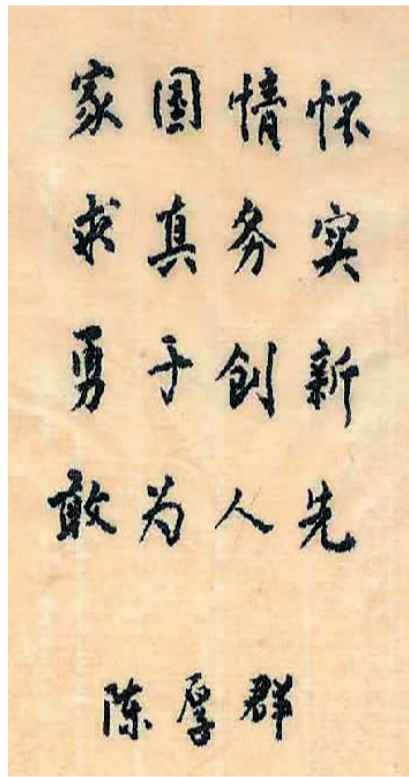 家国情怀
求真务实
勇于创新
敢为人先
陈厚群